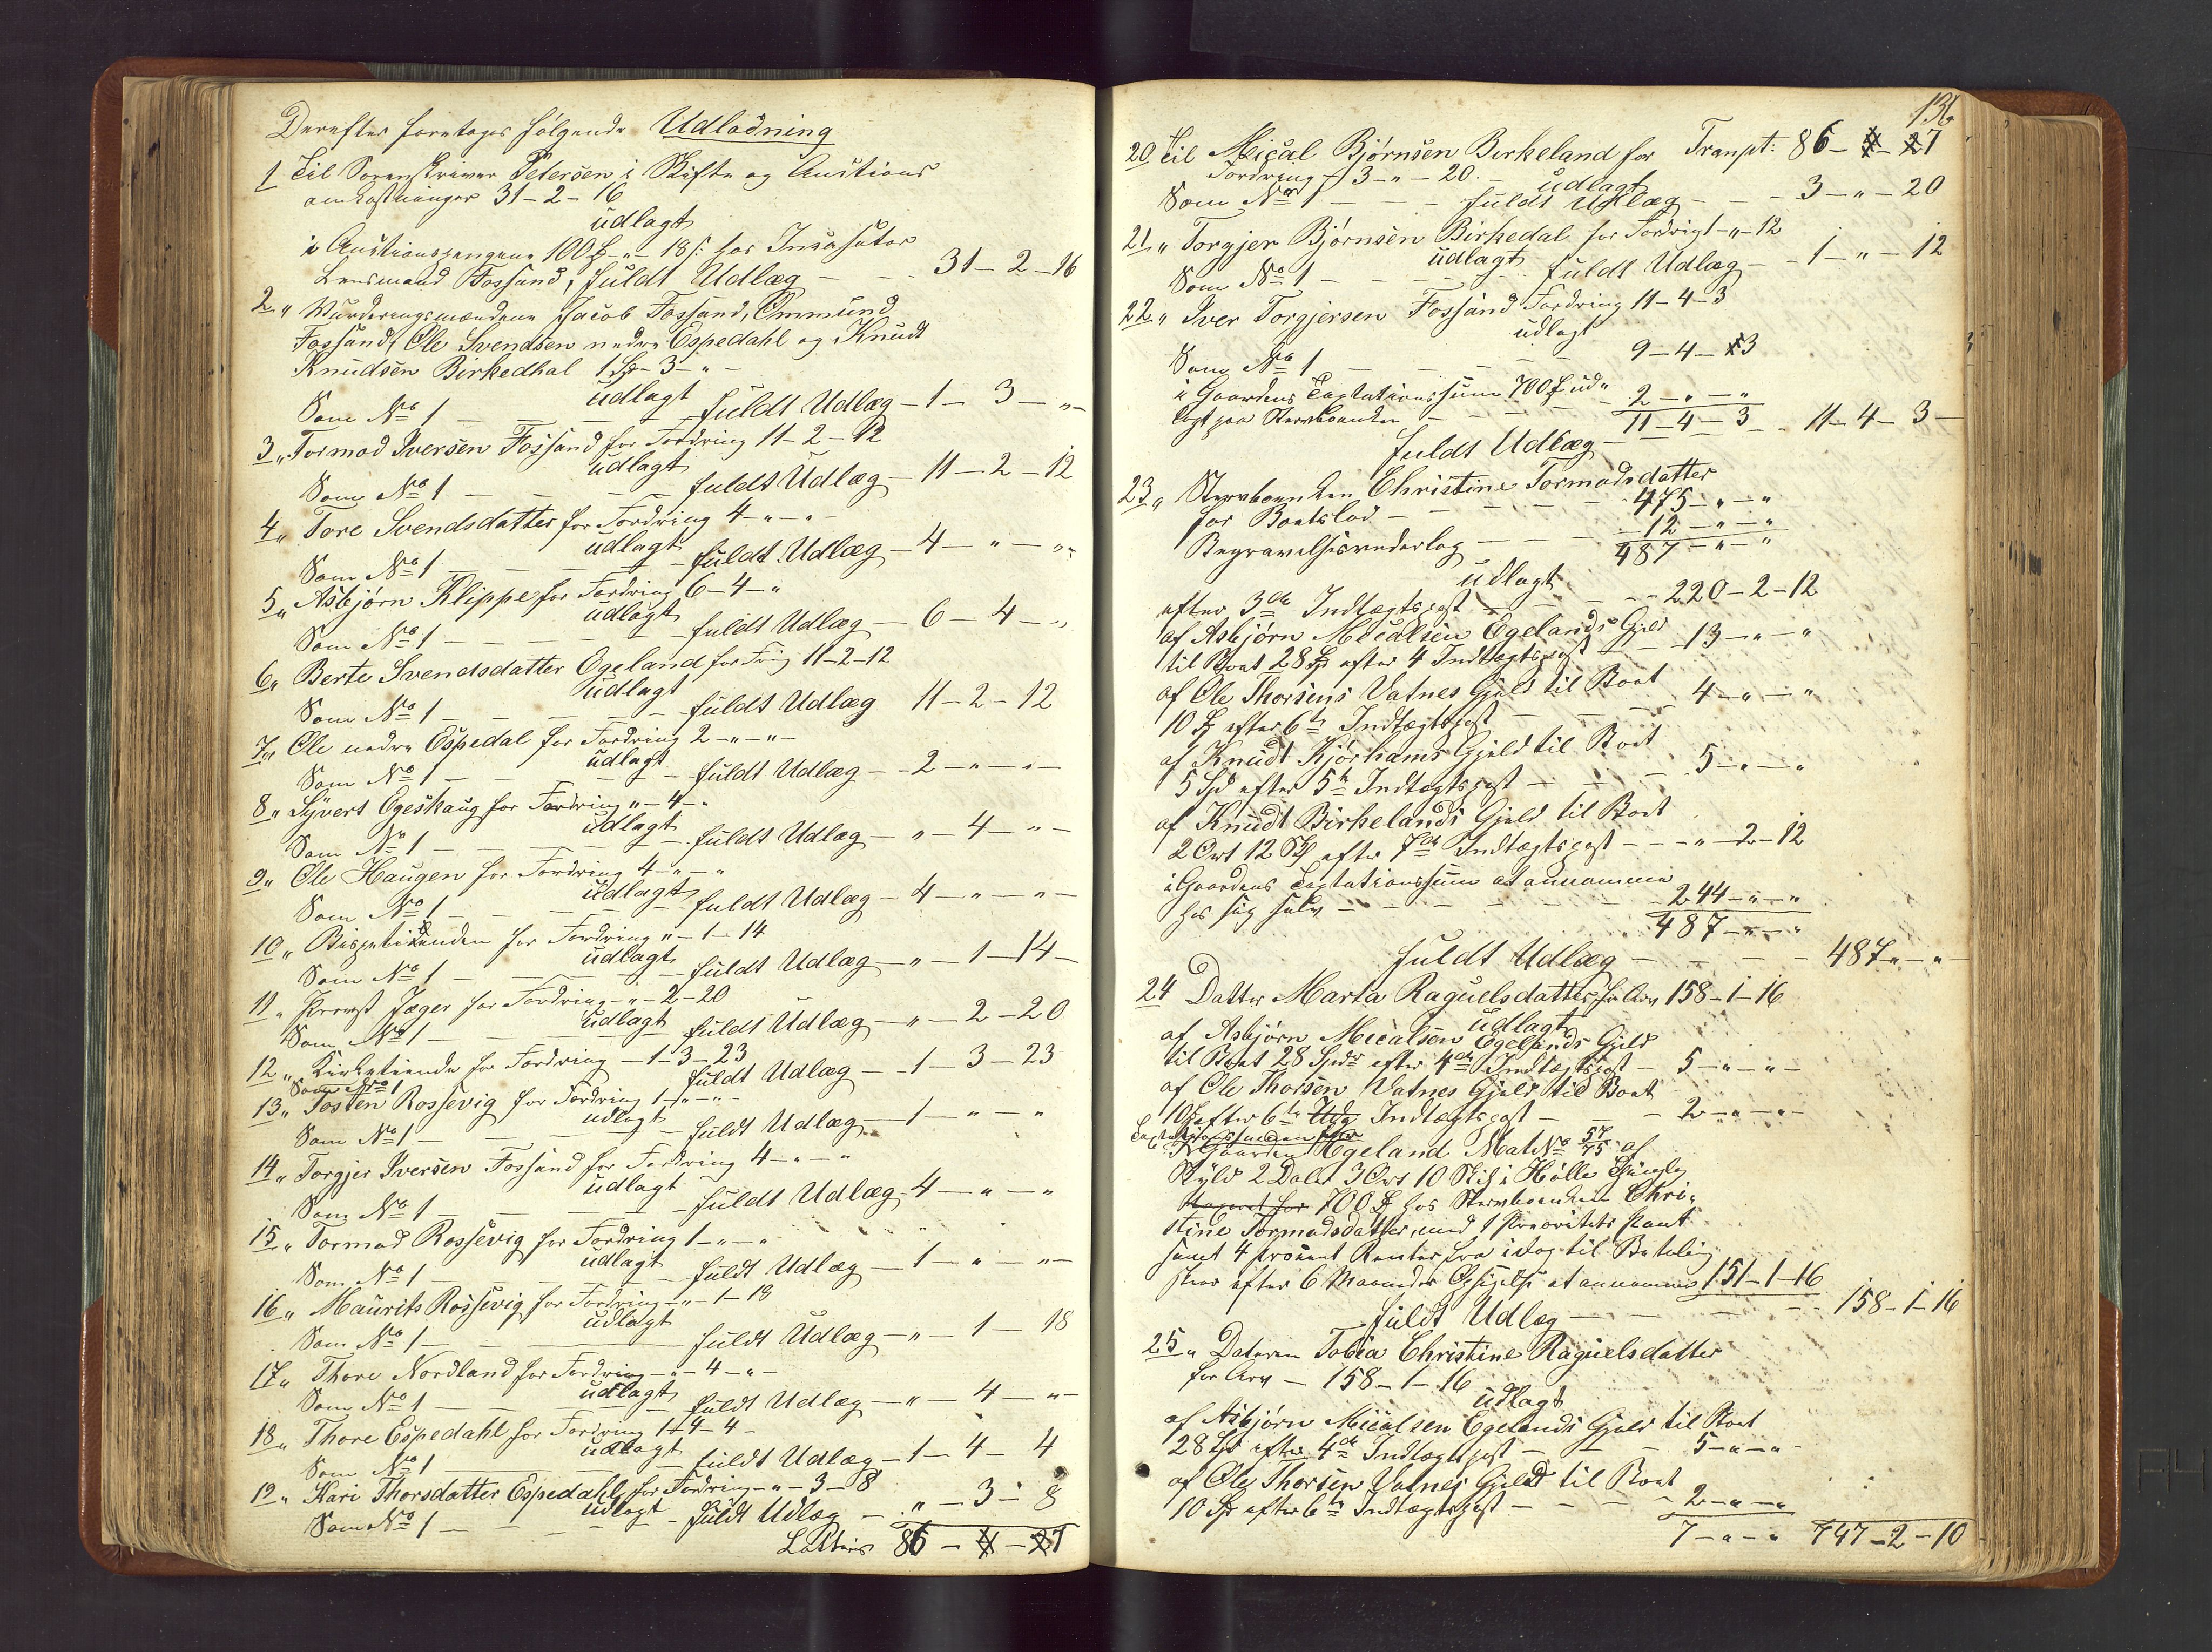 Derefter foretoges følgende Udlodning
1 Til Sorenskriver Petersen i Skifte og Auctions
omkostninger 31-2-16
udlagt
i Auctionspengene 100 - " - 18 ß hos Incasator
Lensmand Fossand, fuldt Udlæg - - 31-2-16
2 " Wurderingsmændene Jacob Fossand, Ommund
Fossand, Ole Svendsen nedre Espedahl og Knudt
Knudsen Birkedhal 1 Sp - 3 - " -
udlagt
Som No 1 - - fuldt Udlæg - 1 - 3 - "
3 " Tormod Iversen Fossand for Fordring 11-2-12
udlagt
Som No 1 - - - fuldt Udlæg - 11-2-12
4 " Tore Svendsdatter for Fordring 4 - " - "
udlagt
Som No 1 - - - fuldt Udlæg - 4 - " - "
5 " Asbjørn Klippe for Fordring 6-4- "
udlagt
Som No 1 - - - fuldt Udlæg - 6 - 4 - "
6 " Berte Svendsdatter Egeland for Frdg 11-2-12
udlagt
Som No 1 - - - fuldt Udlæg 11-2-12
7 " Ole nedre Espedal for Fordring 2 - " - " -
udlagt
Som No 1 - - fuldt Udlæg - 2 - " - " -
8 " Syvert Egeskaug for Fordring " - 4 - "
udlagt
Som No 1 - - - fuldt Udlæg - " - 4 - " -
9 " Ole Haugen for Fordring 4 - " - "
udlagt
Som No 1 - - - fuldt Udlæg - 4 - " - " -
10 " Bispetienden for Fordring " - 1 - 14
udlagt
Som No 1 - - - fuldt Udlæg - " - 1 - 14 -
11 " Provst Jæger for Fordring - " - 2-20
udlagt
Som No 1 - - - fuldt Udlæg - " - 2 - 20
12 " Kirketiende for Fordring - 1-3-23
Som No 1 fuldt Udlæg - 1 - 3 - 23
13 " Tosten Rossevig for Fordring 1 - " - " -
udlagt
Som No 1 - - - fuldt Udlæg - 1 - " - "
14 " Torgjer Iversen Fossand for Fordring 4 - " - "
udlagt
Som No 1 - - - fuldt Udlæg - 4 - " - "
15 " Tormod Rossevig for Fordring 1 - " - "
udlagt
Som No 1 - - - fuldt Udlæg - 1 - " - " -
16 " Maurits Rossevig for Fordring - " - 1 - 18
udlagt
Som No 1 - - fuldt Udlæg - " - 1 - 18
17 " Thore Nordland for Fordring - " - 4 - " -
udlagt
Som No 1 - - - fuldt Udlæg - " - 4 - " -
18 " Thore Espedahl for Fordring 1-4-4 -
udlagt
Som No 1 - fuldt Udlæg - 1 - 4 - 4
19 " Kari Thorsdatter Espedahl for Fordring - " - 3 - 8
udlagt
Som No 1 - - - fuldt Udlæg - " - 3 - 8
Lateris 86 - 4 - 27
136
20 Til Mical Bjørnsen Birkeland for Transpt: 86 - 4 - 27
Fordring - 3 - " - 20 -
udlagt
Som No 1 - - - fuldt Udlæg - - - 3 - " - 20
21 " Torgjer Bjørnsen Birkedal for Fordring 1 - " - 12
udlagt
Som No 1 - - - fuldt Udlæg - - 1 - " - 12
22 " Iver Torgjersen Fossand Fordring 11-4-3
udlagt
Som No 1 - - - - 9-4-3
i Gaardens Taxtationssum 700 ud-
lagt paa Stervboenken - - - 2 - " - "
fuldt Udlæg - 11-4-3 - 11-4-3 -
23 " Stervboenken Christine Tormodsdatter
for Boetslod - - - - - 475 - " - "
Begravelsesvederlag - - - 12 - " - "
487 - " - "
udlagt
efter 3de Indtægtspost - - - - 220-2-12
af Asbjørn Micalsen Egelands Gjeld
til Boet 28 Spd efter 4 Indtægtspost - - 13 - " - "
af Ole Thorsens Vatnes Gjeld til Boet
10 efter 6te Indtægtspost - - - 4 - " - "
af Knudt Kjørhams Gjeld til Boet
5 Spd efter 5te Indtægtspost - - - 5 - " - "
af Knudt Birkelands Gjeld til Boet
2 Ort 12 efter 7de Indtægtspost - - - " - 2-12
i Gaardens Taxtationssum at annamme
hos sig selv - - - - - - 244 - " - "
487 - " - "
fuldt Udlæg - - - - 487 - " - "
24 Datter Marta Raguelsdatter for Arv 158-1-16
udlagt
af Asbjørn Micalsen Egelands Gjeld
til Boet 28 Spdr efter 4de Indtægtspost - 5 - " - " -
af Ole Thorsen Vatnes Gjeld til Boet
10 efter 6te Udg Indtægtspost - - - 2 - " - " -
Taxtationssummen for
Gaarden Egeland Mat No 57/75 af
Skyld 2 Daler 3 Ort 10 Skil i Hølle Thinglag
taxeret for 700 hos Stervboenken Chri-
stine Tormodsdatter, med 1 Prioritets Pant
samt 4 procent Renter fra idag til Betaling
sker efter 6 Maaneders Opsigelse at annamme 151-1-16
fuldt Udlæg - - - - - 158-1-16
25 " Dateren Tobia Christine Raguelsdatter
for Arv - 158-1-16
udlagt
af Asbjørn Micalsen Egelands Gjeld til Boet
28 Spd efter 4de Indtægtspost - - - 5 - " - " -
af Ole Thorsen Vatnes Gjeld til Boet
10 Sp efter 6te Indtægtspost - - - - 2 - " - "
7 - " - " 747-2-10